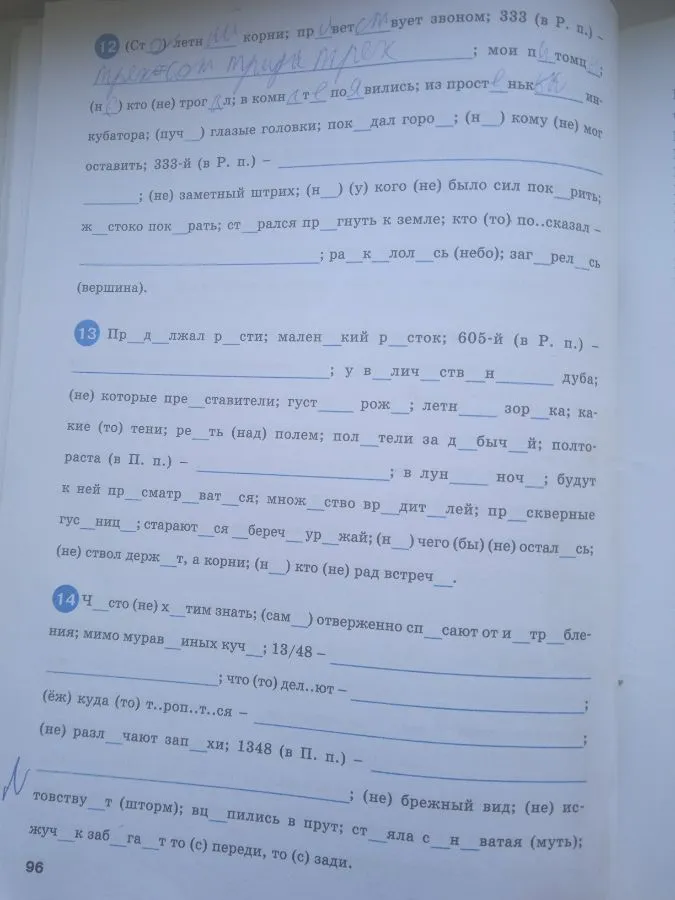 12 (Ст о ) летн ии корни; пр и вет ст вует звоном; 333 (в Р. п.) –
трехсот тридц трех ; мои п и томц ы ;
(н е ) кто (не) трог а л; в комн а т е по я вились; из прост е ньк ин-
кубатора; (пуч__) глазые головки; пок__дал горо__; (н__) кому (не) мог
оставить; 333-й (в Р. п.) – ____
____; (не) заметный штрих; (н__) (у) кого (не) было сил пок__рить;
ж__стоко пок__рать; ст__рался пр__гнуть к земле; кто (то) по..сказал –
____; ра__к__лол__сь (небо); заг__рел__сь
(вершина).
13 Пр__д__лжал р__сти; мален__кий р__сток; 605-й (в Р. п.) –
____; у в__лич__ств__н____ дуба;
(не) которые пре__ставители; густ____ рож__; летн____ зор__ка; ка-
кие (то) тени; ре__ть (над) полем; пол__тели за д__быч__й; полто-
раста (в П. п.) – ____; в лун____ ноч__; будут
к ней пр__сматр__ват__ся; множ__ство вр__дит__лей; пр__скверные
гус__ниц__; старают__ся __береч__ ур__жай; (н__) чего (бы) (не) остал__сь;
(не) ствол держ__т, а корни; (н__) кто (не) рад встреч__.
14 Ч__сто (не) х__тим знать; (сам__) отверженно сп__сают от и__тр__бле-
ния; мимо мурав__иных куч__; 13/48 – ____
____; что (то) дел..ют – ____;
(ёж) куда (то) т..роп..т..ся – ____;
(не) разл__чают зап__хи; 1348 (в П. п.) – ____
____; (не) брежный вид; (не) ис-
товству__т (шторм); вц__пились в прут; ст__яла с__н__ватая (муть);
жуч__к заб__га__т то (с) переди, то (с) зади.
96